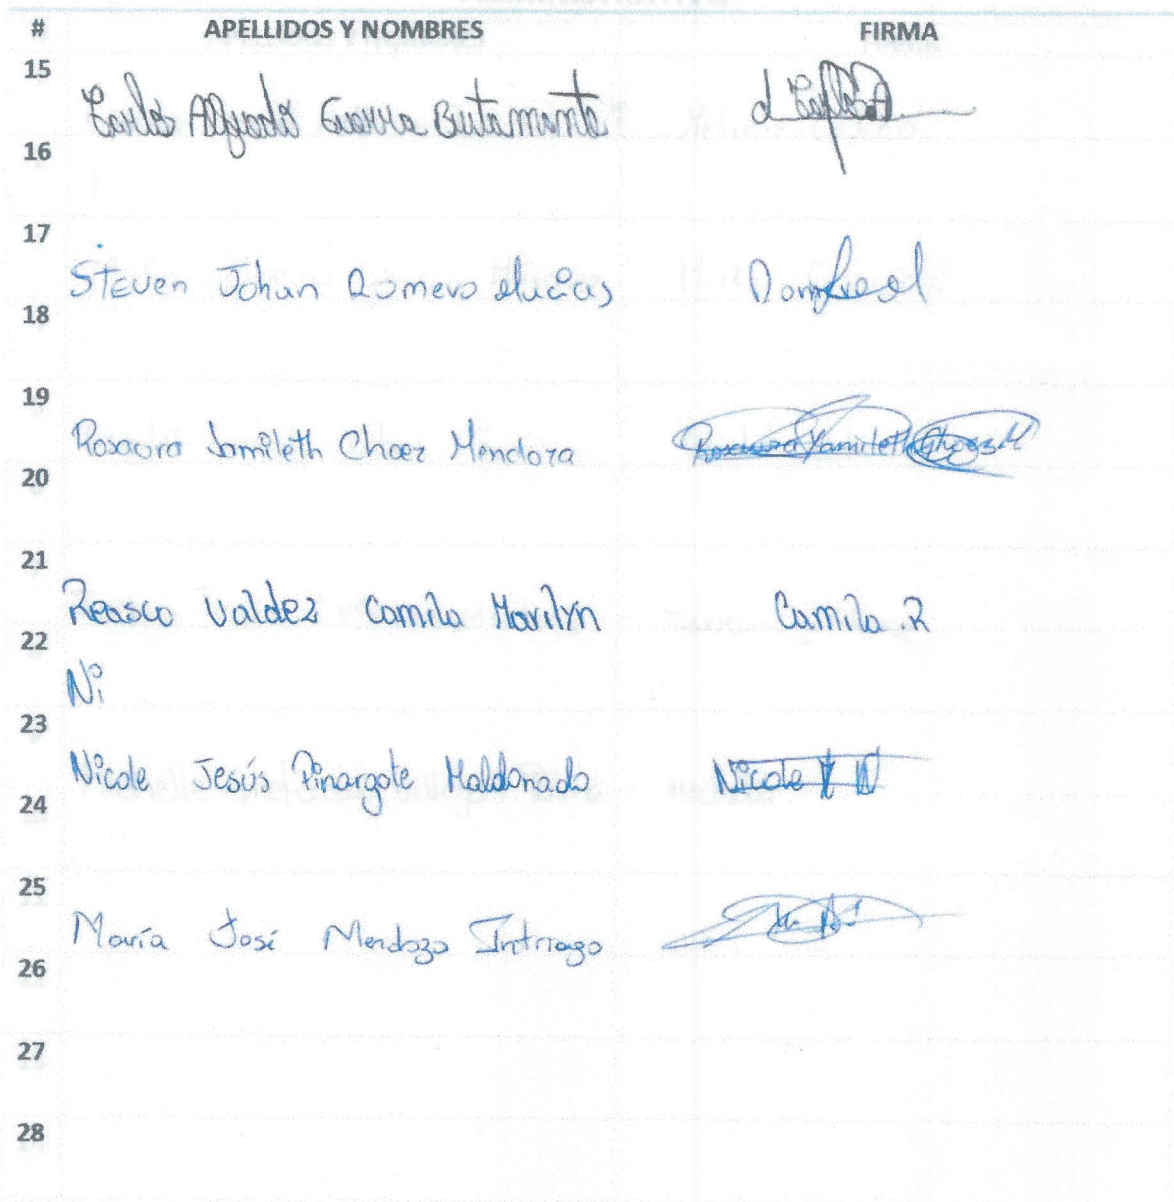 # APELLIDOS Y NOMBRES FIRMA
15
Carlos Alfredo Guerra Butamante
16
17
Steven Johan Romero Macias
18
19
Rosaura Jamileth Choez Mendoza Rosaura Yamileth Choez M
20
21
Reasco Valdez Camila Marilyn Camila R
22
Ni
23
Nicole Jesús Pinargote Maldonado Nicole
24
25
María José Mendoza Intriago
26
27
28